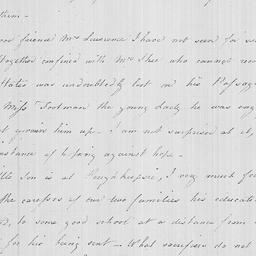 them -
friend Mrs Lawrence I have not seen for
together confined with Mrs Shee who cannot
States was undoubtedly lost on his Passage
Miss Footman the young Lady he was
given him up. I am not surprised at it,
instance of hoping against hope -
son is at Poughkeepsie, I very much
the caresses of our two families his
to some good school at a distance from
for his being sent - What sacrifices do not